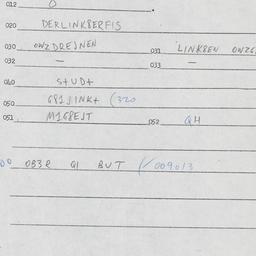 012 0
020 DERLINK8ERFIS
030 OWZDREJNEN 031 LINK8EN OWZG
032 — 033 —
040 S+UD+
050 G81JINK+ (320
051 M1G8EJT 052 QH
0B32 Q1 BUT (009013